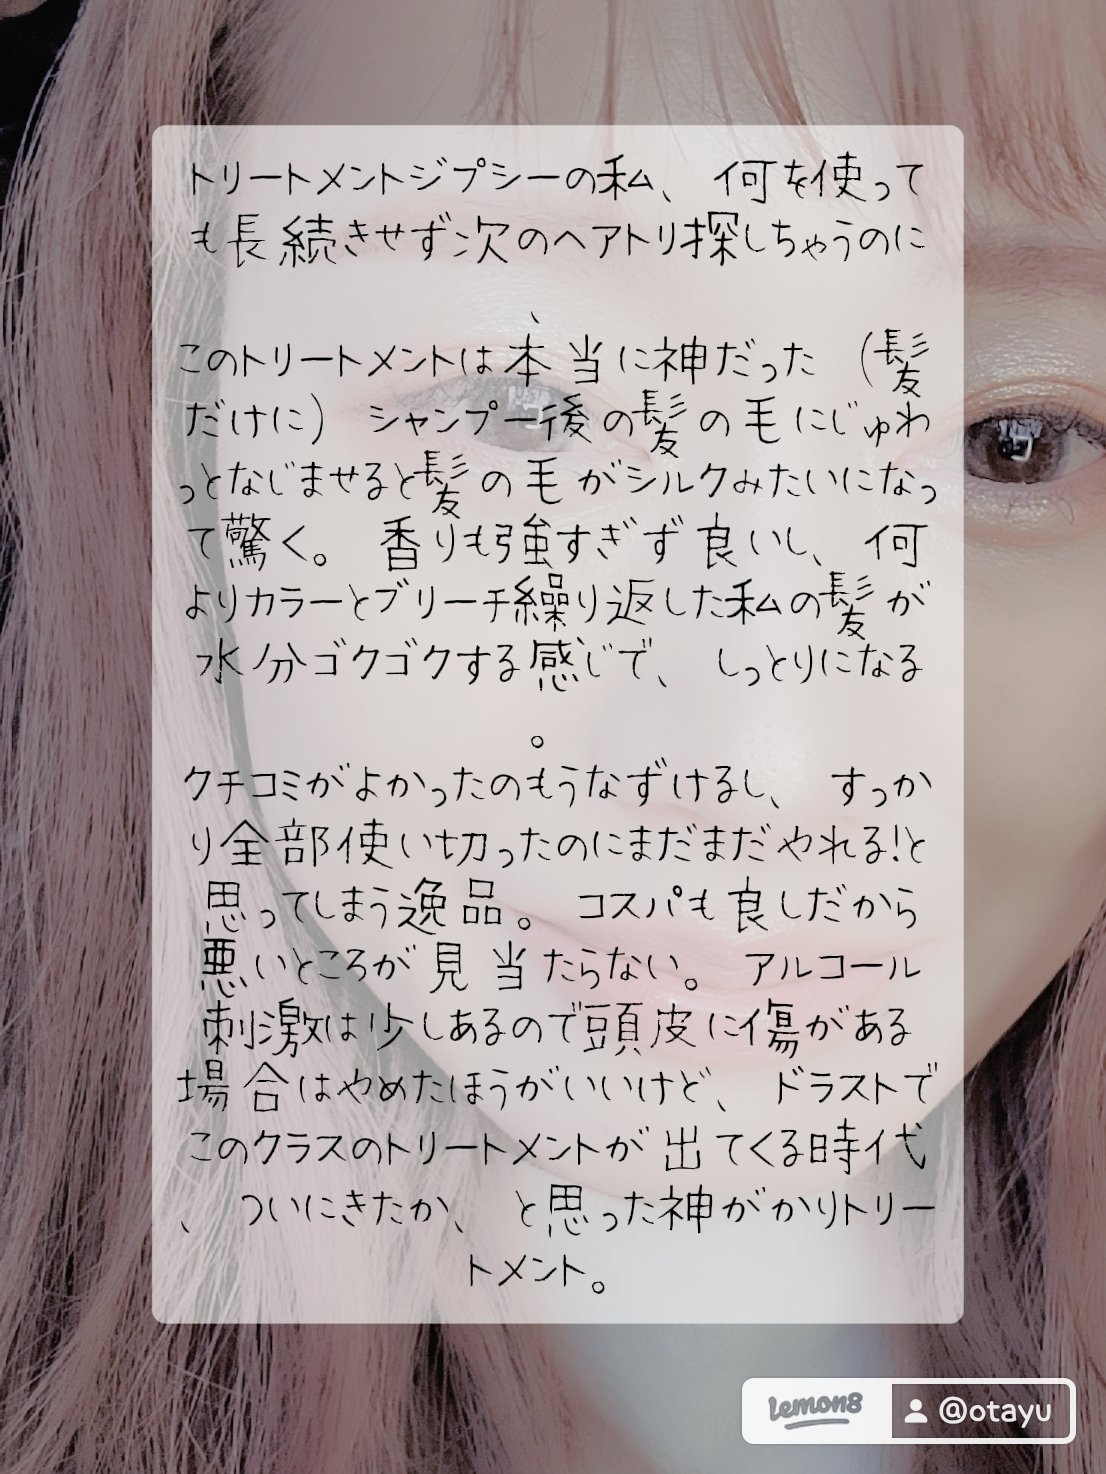 トリートメントジプシーの私、 何を使って
も長続きせず次のヘアトリ探しちゃうのに
、
このトリートメントは本当に神だった （髪
だけに） シャンプー後の髪の毛にじゅわ
っとなじませると髪の毛がシルクみたいになっ
て驚く。 香りも強すぎず良いし、 何
よりカラーとブリーチ繰り返した私の髪が
水分ゴクゴクする感じで、 しっとりになる
。
クチコミがよかったのもうなずけるし、 すっか
り全部使い切ったのにまだまだやれる!と
思ってしまう逸品。 コスパも良しだから
悪いところが見当たらない。 アルコール
刺激は少しあるので頭皮に傷がある
場合はやめたほうがいいけど、 ドラストで
このクラスのトリートメントが出てくる時代
、 ついにきたか、 と思った神がかりトリー
トメント。
lemon8 @otayu